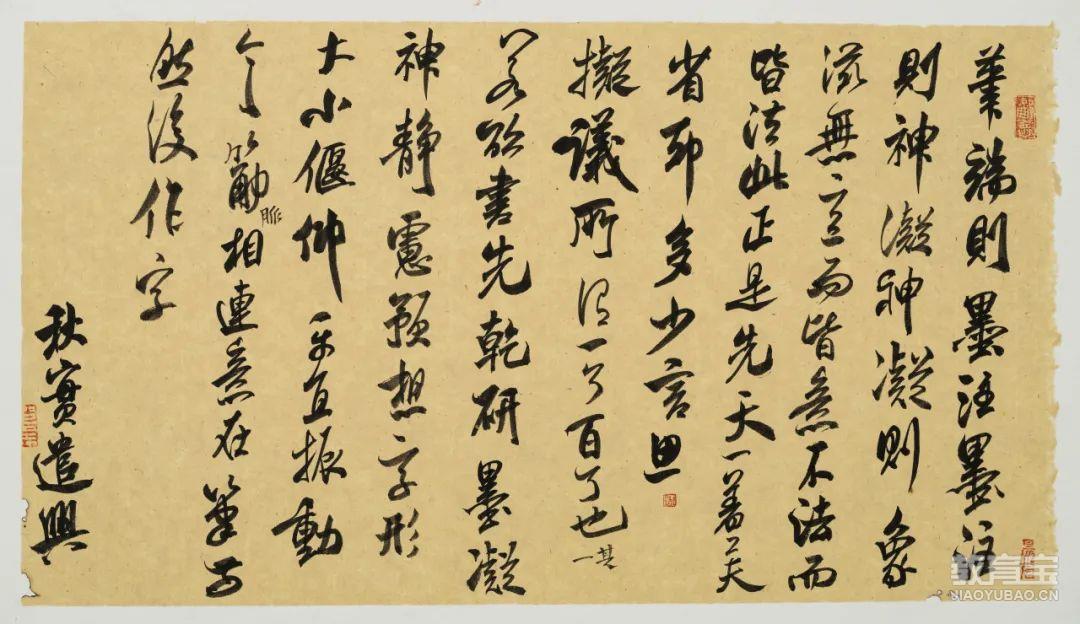 筆端則墨注墨注
則神凝神凝則象
滋無意而皆意不法而
皆法此正是先天一着夫
省却多少言思
擬議所謂一了百了也其一
欲書先乾研墨凝
神靜慮預想字形
大小偃仰平直振動
令筋脈相連意在筆前
然後作字
秋實遣興
教育宝
JIAOYUBAO.CN